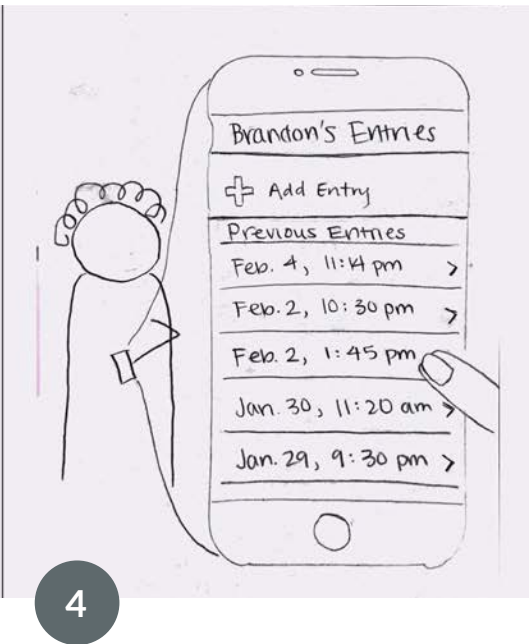 Brandon's Entries
Add Entry
Previous Entries
Feb. 4, 11:14 pm >
Feb. 2, 10:30 pm >
Feb. 2, 1:45 pm
Jan. 30, 11:20 am >
Jan. 29, 9:30 pm >
4